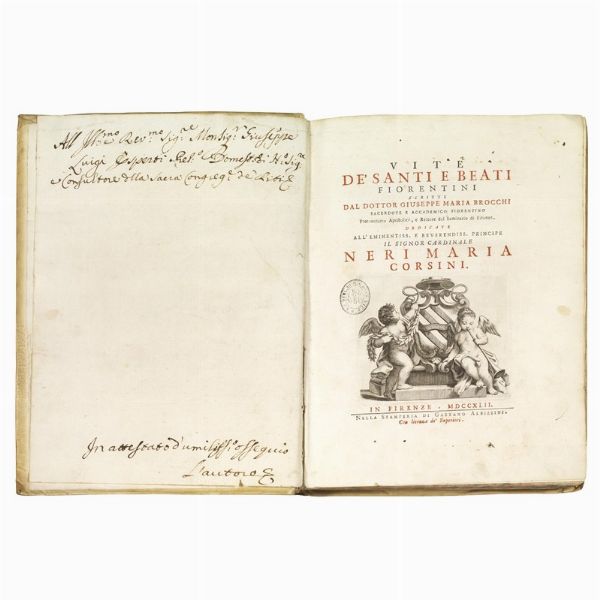 All' Ill.mo Rev.mo Sig.re Monsig.r Giuseppe
Luigi Esperti Pel.o Domest.o N. Sig.e
e Consultore della Sacra Congreg.e de Riti &
In attestato d'umiliss.o ossequio
L'autore &
VITE
DE' SANTI E BEATI
FIORENTINI
SCRITTE
DAL DOTTOR GIUSEPPE MARIA BROCCHI
SACERDOTE E ACCADEMICO FIORENTINO
Protonotario Apostolico, e Rettore del Seminario di Firenze,
DEDICATE
ALL'EMINENTISS. E REVERENDISS. PRINCIPE
IL SIGNOR CARDINALE
NERI MARIA
CORSINI.
IN FIRENZE. MDCCXLII.
NELLA STAMPERIA DI GAETANO ALBIZZINI.
Con licenza de' Superiori.